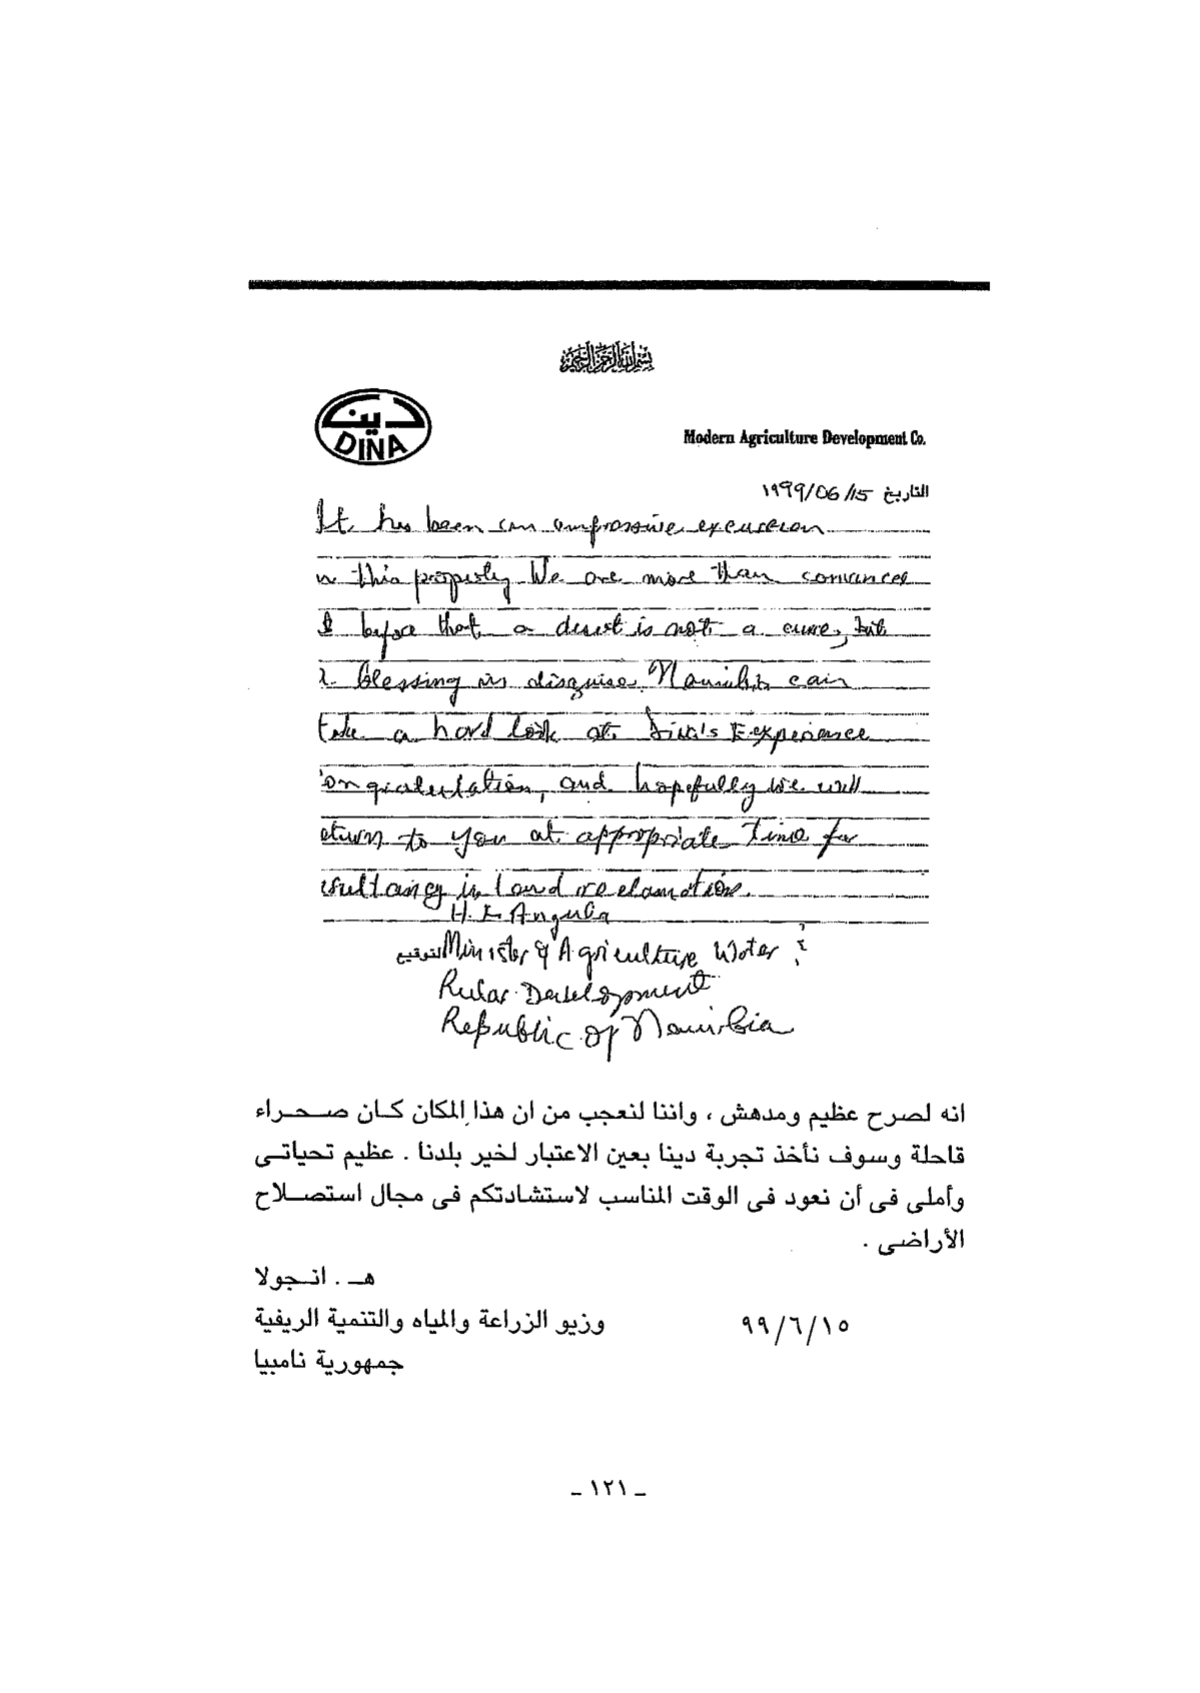 بسم الله الرحمن الرحيم
دينا
DINA
Modern Agriculture Development Co.
التاريخ 15/06/1999
It has been an impressive excursion
this property. We are more than convinced
before that a desert is not a curse, but
blessing in disguise. Namibia can
take a hard look at Dina's Experience
ongratulation, and hopefully we will
eturn to you at appropriate time for
sultancy in land reclamation.
H. E. Angula
التوقيع Minister of Agriculture Water
Rural Development
Republic of Namibia
انه لصرح عظيم ومدهش ، واننا لنعجب من ان هذا المكان كان صحراء
قاحلة وسوف نأخذ تجربة دينا بعين الاعتبار لخير بلدنا . عظيم تحياتى
وأملى فى أن نعود فى الوقت المناسب لاستشادتكم فى مجال استصلاح
الأراضى .
هـ . انجولا
وزيو الزراعة والمياه والتنمية الريفية
٩٩/٦/١٥
جمهورية نامبيا
ـ ١٢١ ـ